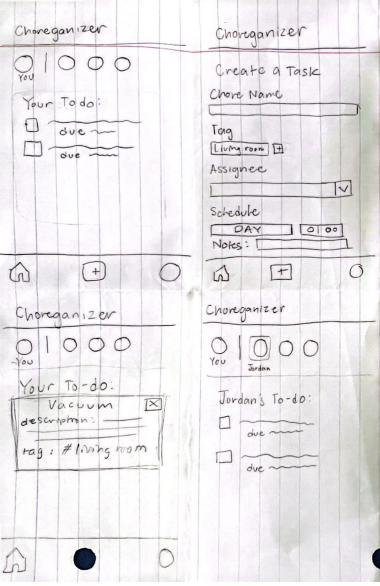 Choreganizer
You
Your To do:
due
due
Choreganizer
Create a Task
Chore Name
Tag
Living room +
Assignee
Schedule
DAY 0|00
Notes:
+
Choreganizer
You
Your To-do:
Vacuum X
description:
tag: #living room
Choreganizer
You
Jordan
Jordan's To-do:
due
due